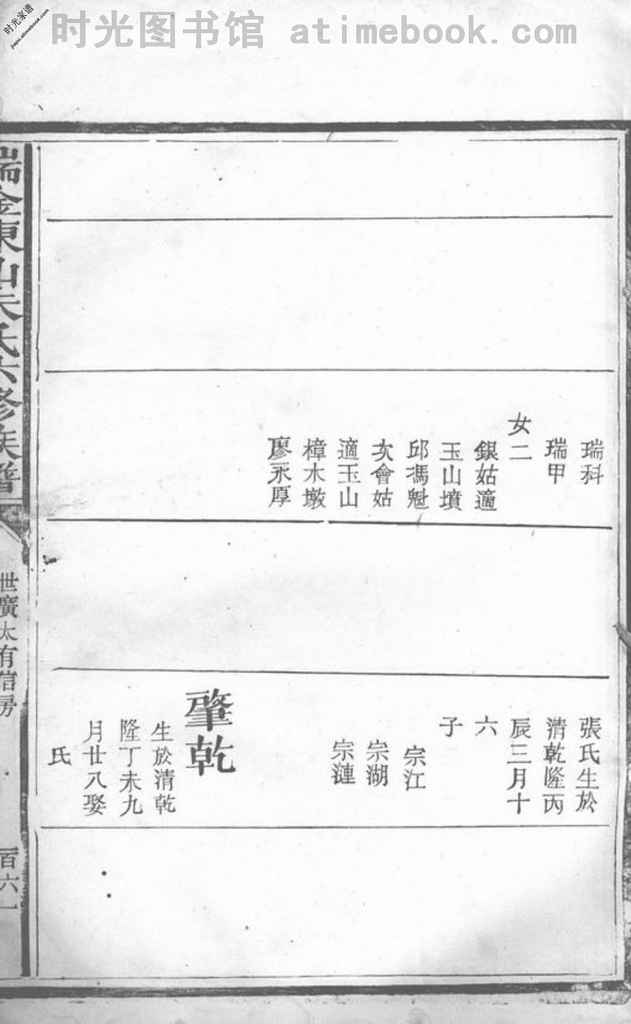 时光家谱
时光图书馆 atimebook.com
瑞科
瑞甲
女二
銀姑適
玉山墳
邱馮魁
次會姑
適玉山
樟木墩
廖永厚
張氏生於
清乾隆丙
辰三月十
六
子
宗江
宗湖
宗漣
肇乾
生於清乾
隆丁未九
月廿八娶
氏
瑞金東山朱氏六修族譜
世廣太有信房
百六一